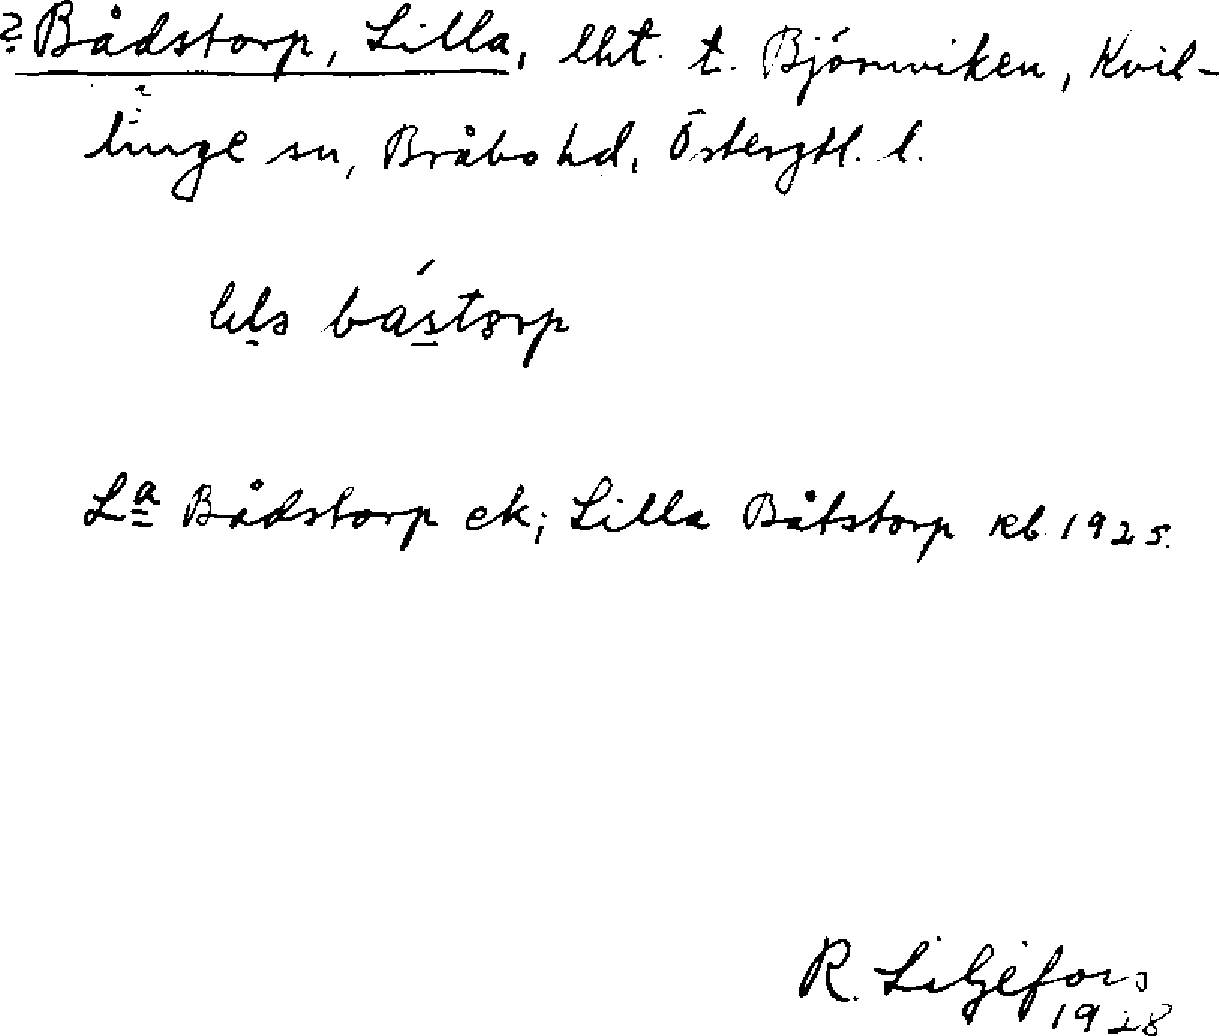 Bådstorp, Lilla, lht. t. Björnviken, Kvil-
linge sn, Bråbo hd, Östergtl. l.
bástorp
Lª Bådstorp ek; Lilla Båtstorp kb 1925.
R. Liljefors
1928